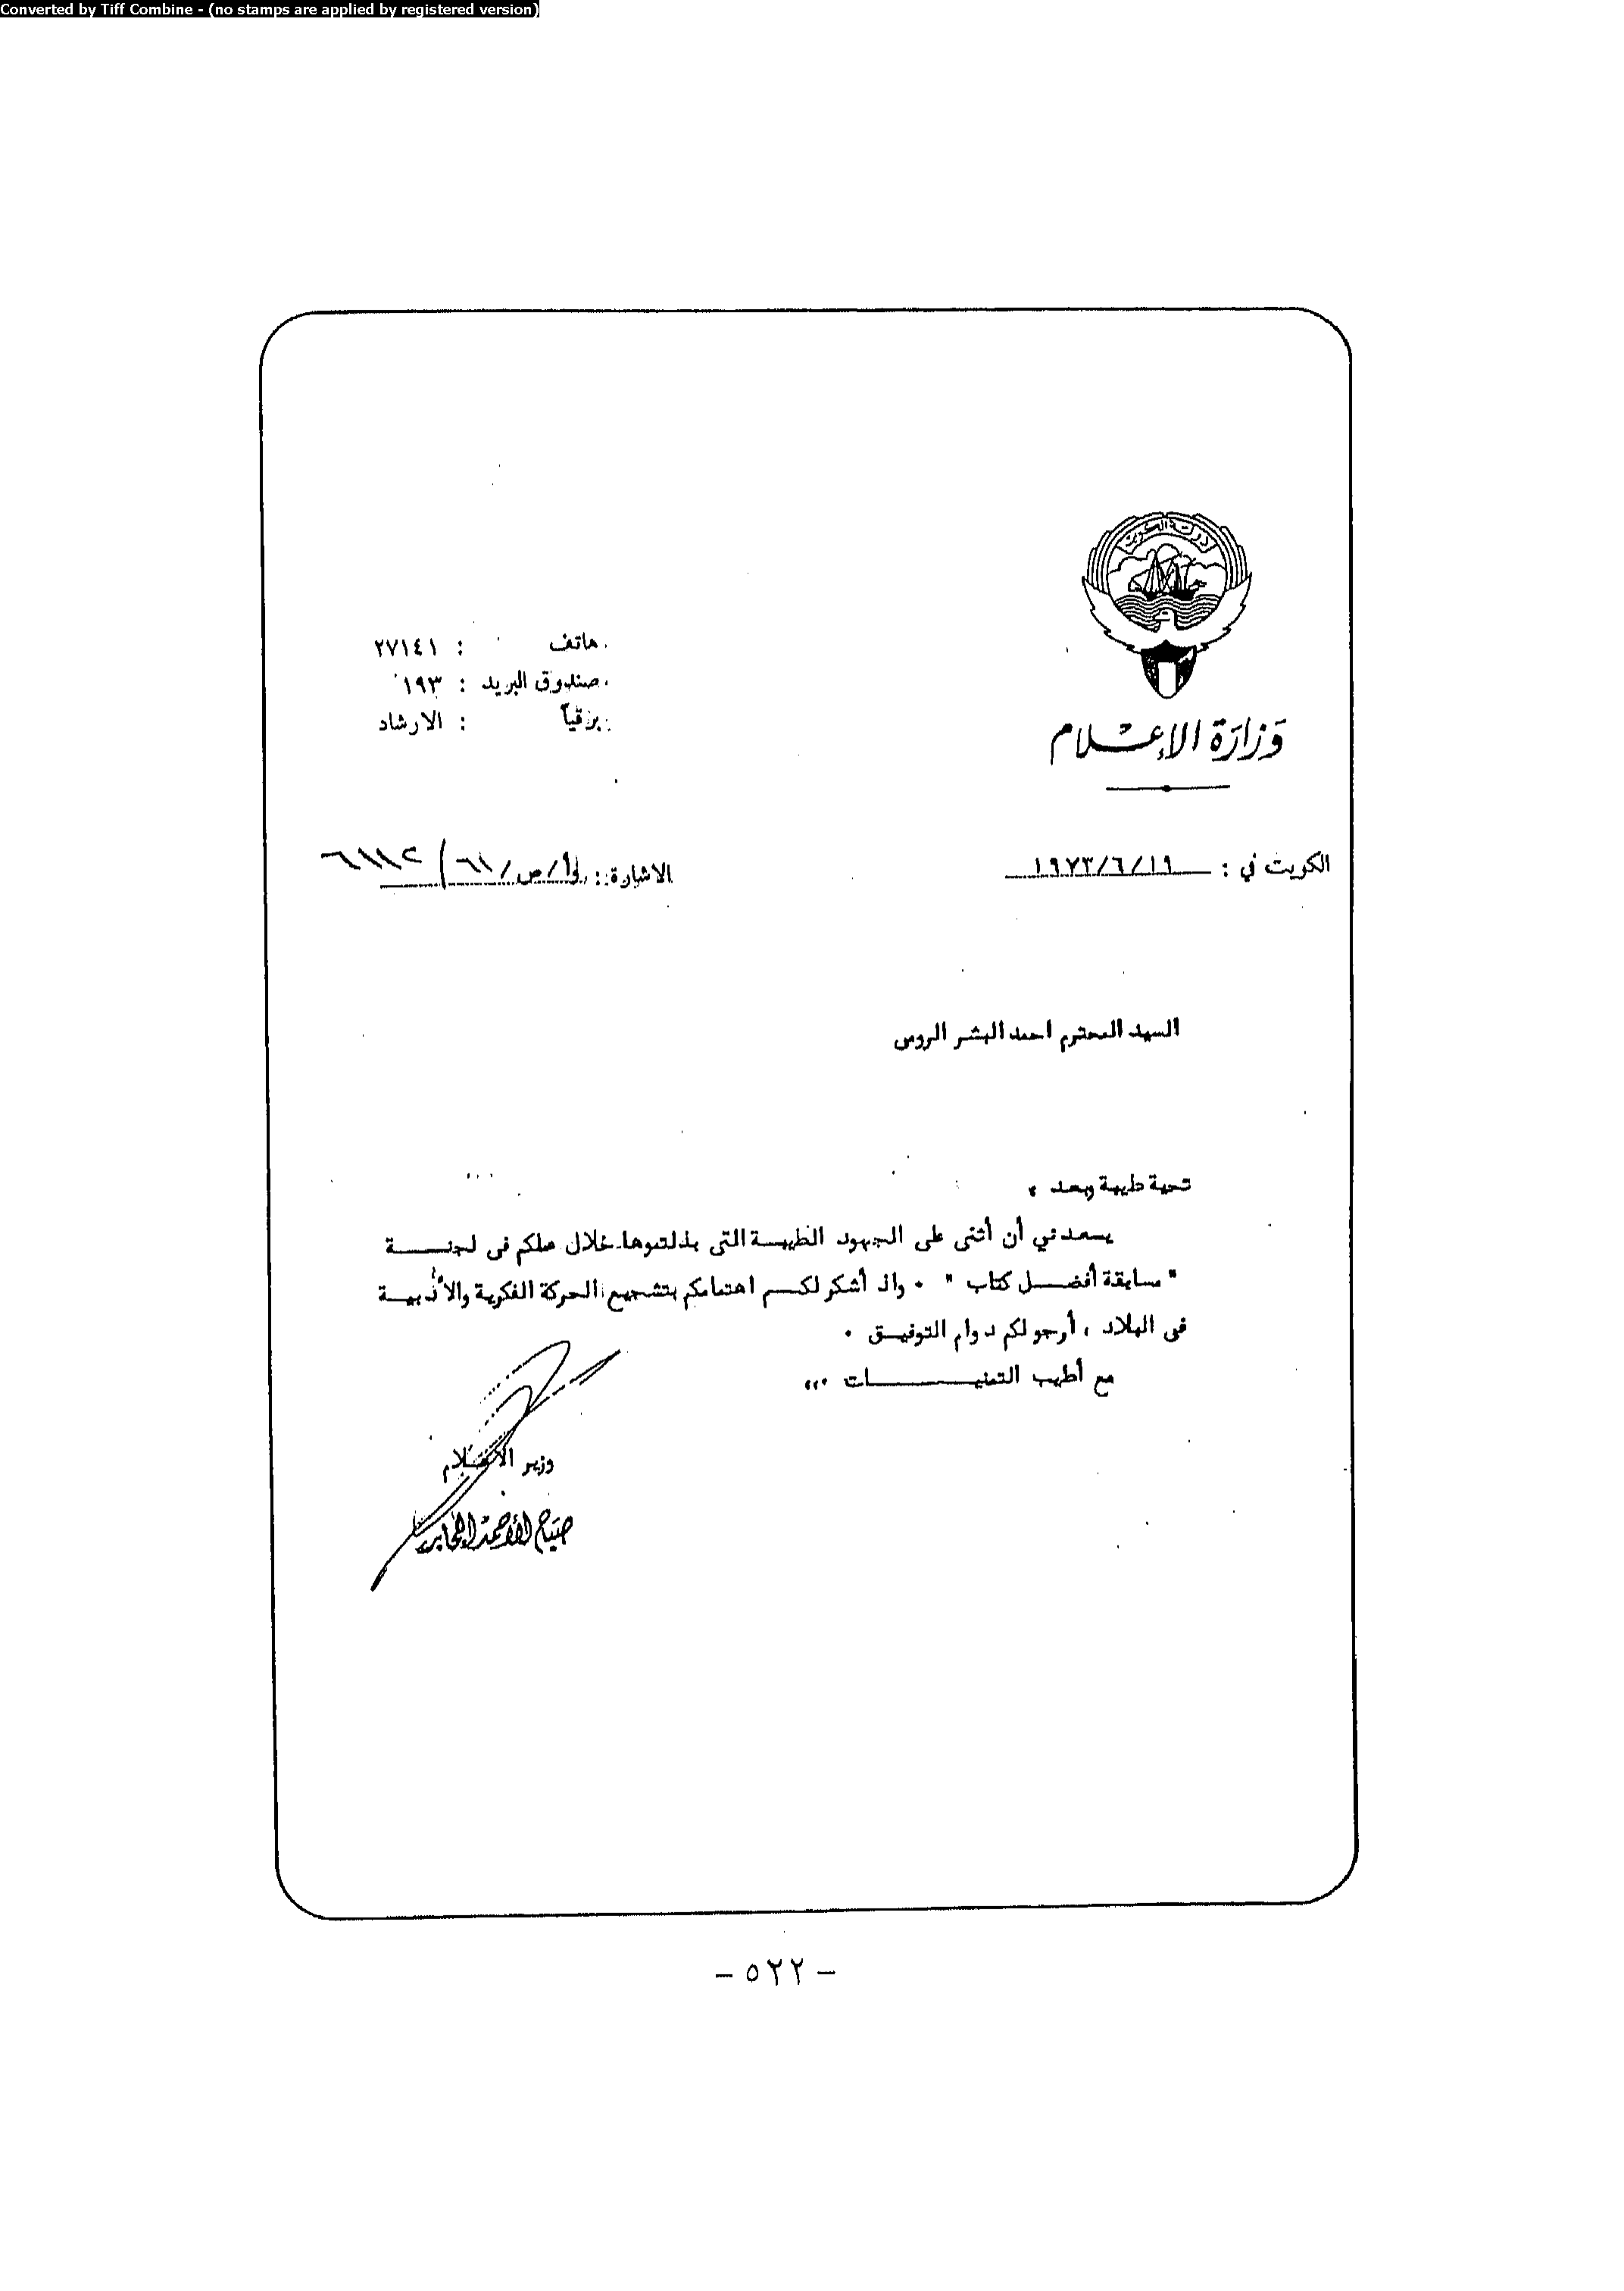 Converted by Tiff Combine - (no stamps are applied by registered version)
دولة الكويت
وزارة الإعلام
هاتف : ٢٧١٤١
صندوق البريد : ١٩٣
برقياً : الارشاد
الكويت في : ١٩٧٣/٦/١٩
الاشارة :
السيد المحترم احمد البشر الرومي
تحية طيبة وبعد ،
يسعدني أن أثنى على الجهود الطيبـة التى بذلتموها خلال عملكم فى لجنـــة
" مسابقة أفضــل كتاب " ٠ واذ أشكر لكـم اهتمامكم بتشجيع الحركة الفكرية والأدبيـة
فى البلاد ، أرجو لكم دوام التوفيـق ٠
مع أطيب التمنيــــــات ،،،
وزير الاعلام
صباح الأحمد الجابر
- ٥٢٢ -